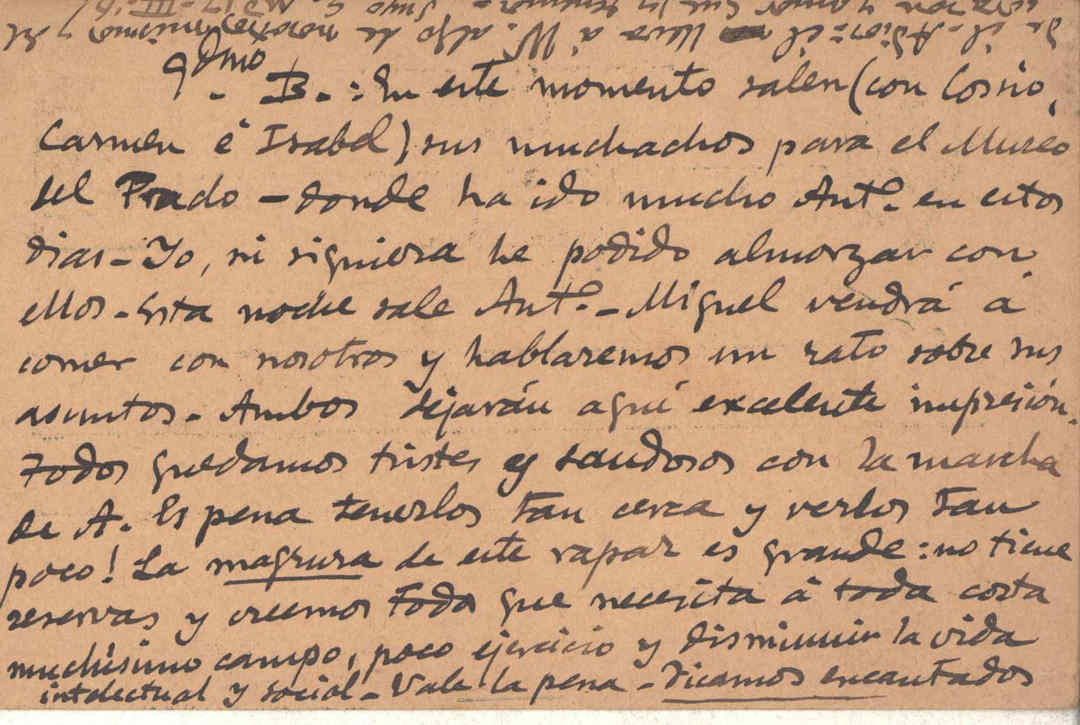 Qdmo
B.: En este momento salen (con Cossio,
Carmen é Isabel) sus muchachos para el Museo
del Prado - donde ha ido mucho Antº. en estos
dias - Yo, ni siquiera he podido almorzar con
ellos - Esta noche sale Antº. - Miguel vendrá á
comer con nosotros y hablaremos un rato sobre sus
asuntos - Ambos dejarán aquí excelente impresión.
Todos quedamos tristes y saudosos con la marcha
de A. Es pena tenerlos tan cerca y verlos tan
poco! La magrura de este rapaz es grande: no tiene
reservas y creemos todos que necesita á toda costa
muchísimo campo, poco ejercicio y disminuir la vida
intelectual y social - Vale la pena - Dicamos encantados
de él - Adios: él lleva á M. algo de